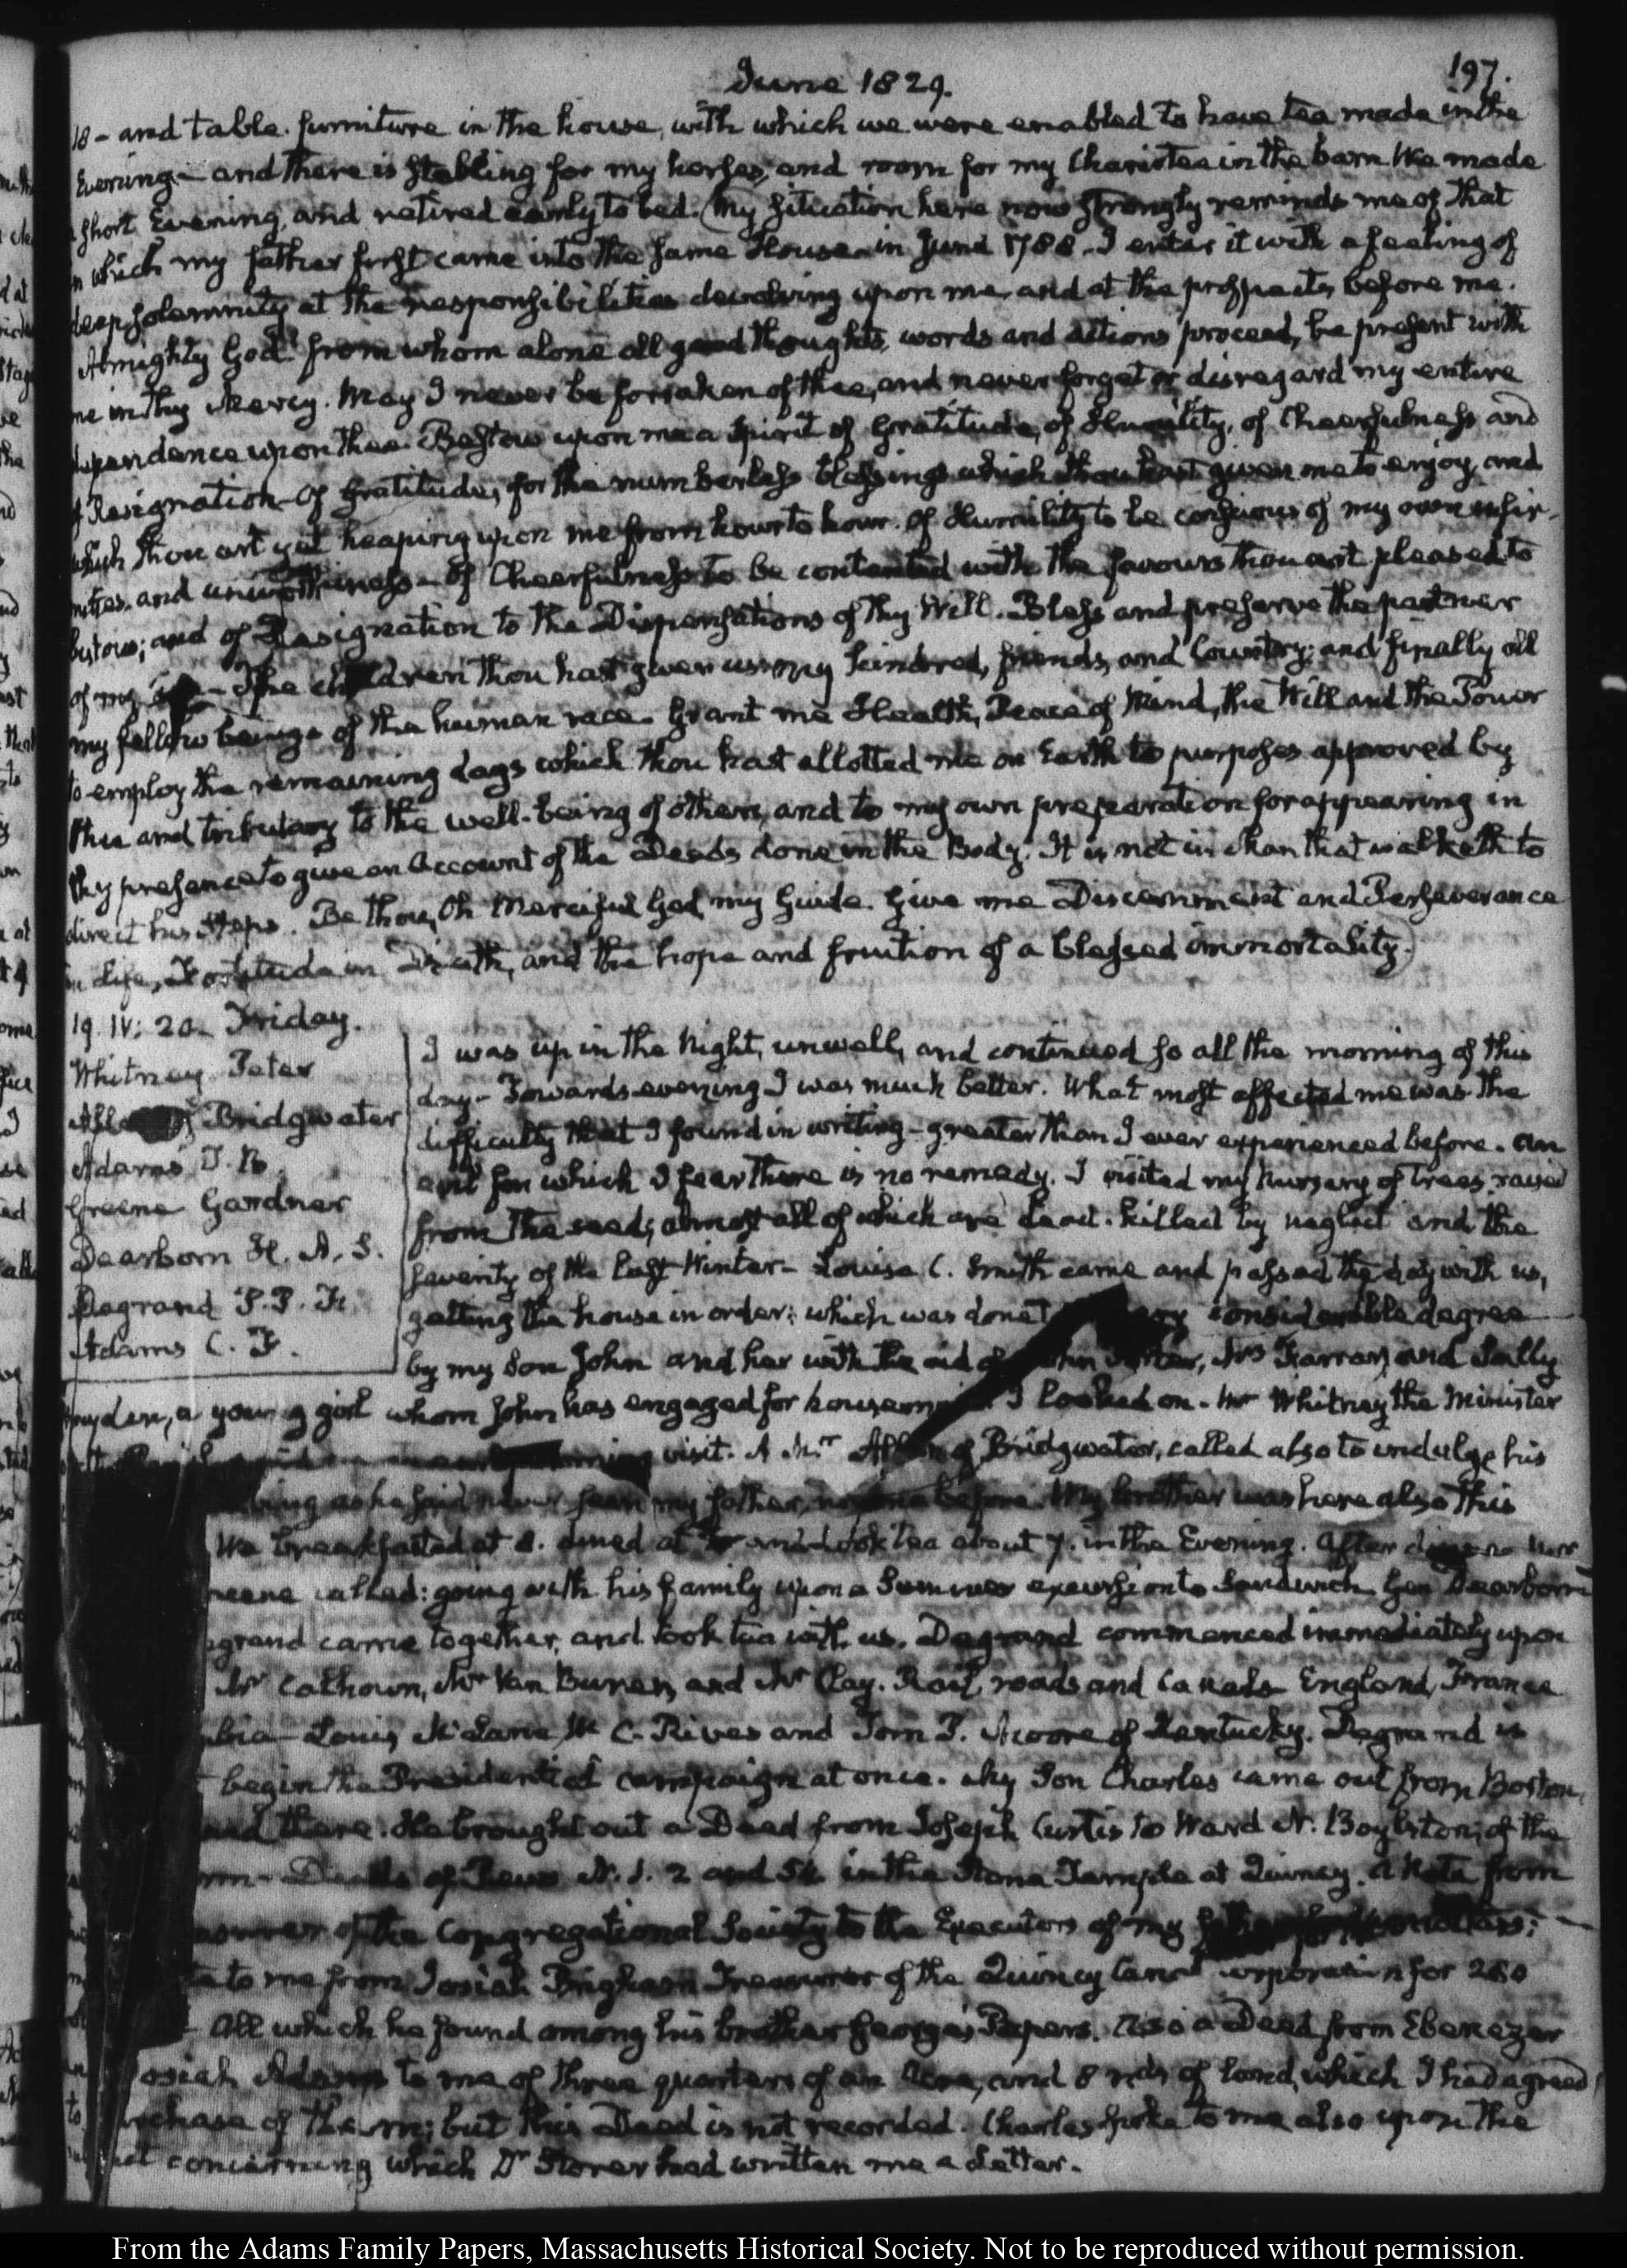 June 1829.
197.
18 - and table furniture in the house, with which we were enabled to have tea made in the
Evening - and there is stabling for my horses, and room for my Chariotee in the barn We made
short Evening, and retired early to bed. (My situation here now strongly reminds me of that
in which my father first came into the same House in June 1788. I enter it with a feeling of
deep solemnity at the responsibilities devolving upon me, and at the prospects before me.
Almighty God! from whom alone all good thoughts, words and actions proceed, be present with
me in thy Mercy. May I never be forsaken of thee, and never forget or disregard my entire
dependance upon thee. Bestow upon me a Spirit of Gratitude, of Humility, of Cheerfulness and
of Resignation - Of Gratitude, for the numberless blessings which thou hast given me to enjoy, and
which thou art yet heaping upon me from hour to hour. Of Humility to be conscious of my own infir-
mities, and unworthiness - Of Cheerfulness to be contented with the favours thou art pleased to
bestow; and of Resignation to the Dispensations of thy Will. Bless and preserve the partner
of my - The children thou hast given us my kindred, friends, and Country; and finally all
my fellow beings of the human race. Grant me Health, Peace of Mind, the Will and the Power
to employ the remaining days which thou hast allotted me on Earth to purposes approved by
thee and tributary to the well-being of others, and to my own preparation for appearing in
thy presence to give an Account of the Deeds done in the Body. It is not in Man that walketh to
direct his steps. Be thou, Oh Merciful God, my Guide. Give me Discernment and Perseverance
in Life, Fortitude in Death, and the hope and fruition of a blessed immortality.)
19. IV: 20. Friday.
Whitney Peter
Bridgwater
Adams T. B.
Greene Gardner
Dearborn H. A. S.
Degrand P. P. F.
Adams C. F.
I was up in the Night, unwell, and continued so all the morning of this
day - Towards evening I was much better. What most affected me was the
difficulty that I found in writing - greater than I ever experienced before. an
evil for which I fear there is no remedy. I visited my Nursery of trees, raised
from the seed; almost all of which are dead. killed by neglect and the
severity of the last Winter - Louisa C. Smith came and passed the day with us,
getting the house in order: which was done considerable degree
by my Son John and her with the aid of Mrs Farrar, and Sally
a young girl whom John has engaged for I looked on. Mr Whitney the Minister
visit. A Mr of Bridgwater, called also to indulge his
as he said never seen my father, before. My brother was here also this
We breakfasted at 8. dined at and took tea about 7. in the Evening. After dinner Mr
called: going with his family upon a Summer excursion to Sandwich. Genl Dearborn
came together, and took tea with us. Degrand commenced immediately upon
Mr Calhoun, Mr Van Buren, and Mr Clay. Rail roads and Canals England, France
Louis McLane, W. C. Rives and Tom P. Moore of Kentucky. Degrand is
begin the Presidential campaign at once. My Son Charles came out from Boston,
there. He brought out a Deed from Joseph Curtis to Ward N. Boylston, of the
Deeds of Pews N. 1. 2 and 54 in the Stone Temple at Quincy. a Note from
of the Congregational Society to the Executors of my
to me from Josiah Brigham Treasurer of the Quincy Canal corporation for 200
All which he found among his brother George's Papers. Also a Deed from Ebenezer
Adams to me of three quarters of an Acre, and 8 rods of land, which I had agreed
of them; but this Deed is not recorded. Charles spoke to me also upon the
concerning which Dr Storer had written me a Letter.
From the Adams Family Papers, Massachusetts Historical Society. Not to be reproduced without permission.